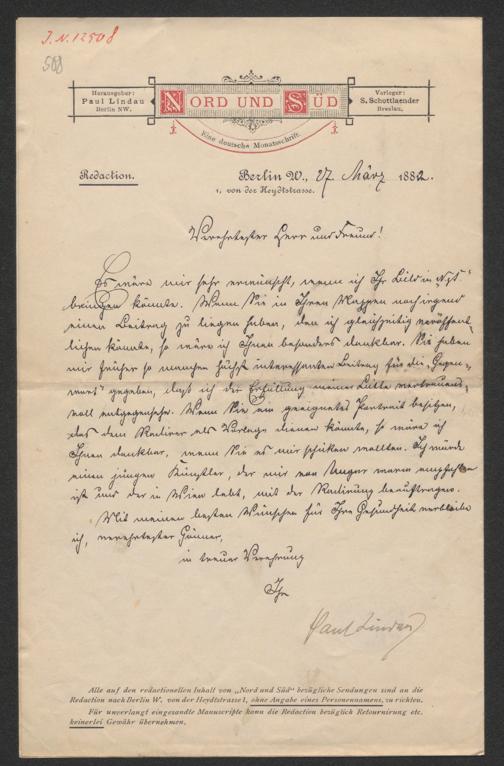 J. N. 12508
508
Herausgeber:
Paul Lindau
Berlin NW.
NORD UND SÜD
Verleger:
S. Schottlaender
Breslau.
Eine deutsche Monatsschrift.
Redaction.
Berlin W., 27. März 1882.
1, von der Heydtstrasse.
Verehrtester Herr und Freund!
Es wäre mir sehr erwünscht, wenn ich Ihr Bild in „N&S“
bringen könnte. Wenn Sie in Ihren Mappen noch irgend
einen Beitrag zu liegen haben, den ich gleichzeitig veröffent-
lichen könnte, so wäre ich Ihnen besonders dankbar. Sie haben
mir früher so manchen höchst interessanten Beitrag für die „Gegen-
wart“ gegeben, daß ich der Erfüllung meiner Bitte vertrauens-
voll entgegensehe. Wenn Sie ein geeignetes Portrait besitzen,
das dem Radirer als Vorlage dienen könnte, so wäre ich
Ihnen dankbar, wenn Sie es mir schicken wollten. Ich würde
einen jungen Künstler, der mir von Unger warm empfohlen
ist und der in Wien lebt, mit der Radirung beauftragen.
Mit meinen besten Wünschen für Ihre Gesundheit verbleibe
ich, verehrtester Gönner,
in treuer Verehrung
Ihr
Paul Lindau
Alle auf den redactionellen Inhalt von „Nord und Süd“ bezügliche Sendungen sind an die
Redaction nach Berlin W. von der Heydtstrasse 1, ohne Angabe eines Personennamens, zu richten.
Für unverlangt eingesandte Manuscripte kann die Redaction bezüglich Retournirung etc.
keinerlei Gewähr übernehmen.